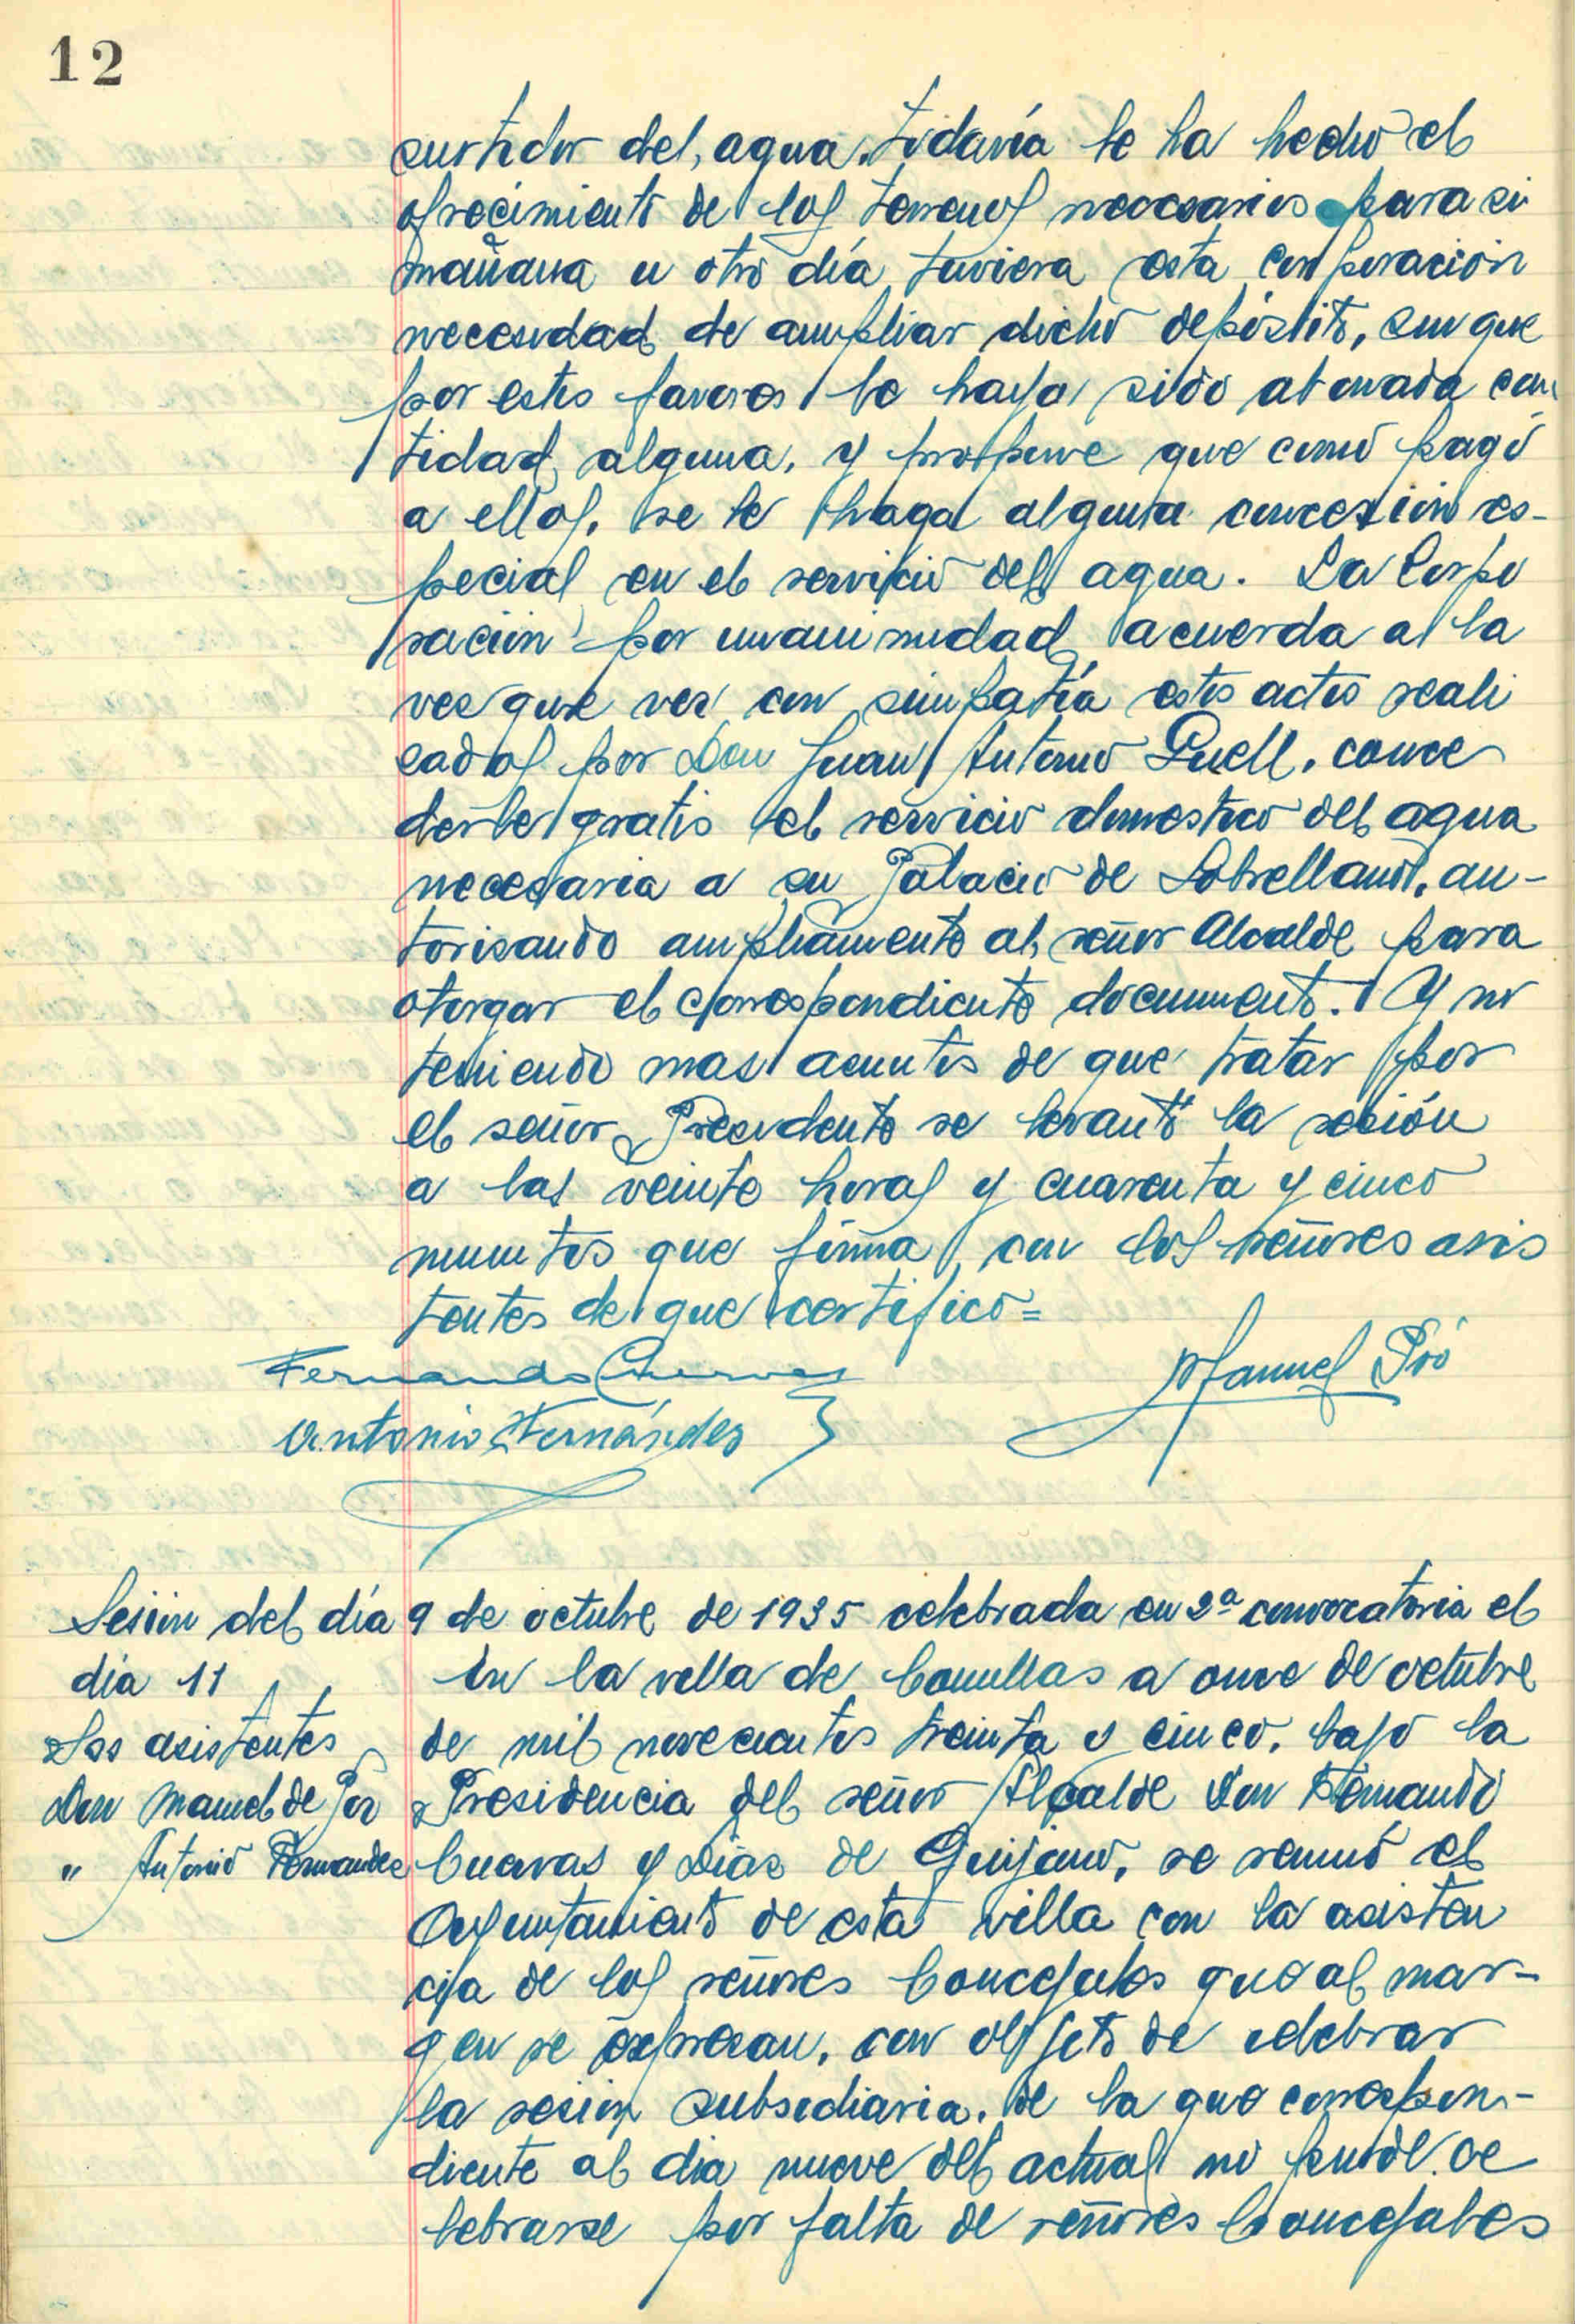 12
surtidor del agua. todavía le ha hecho el
ofrecimiento de los terrenos necesarios para si
mañana u otro día tuviera esta corporacion
necesidad de ampliar dicho depósito, sin que
por estos favores le haya sido abonada can
tidad alguna, y propone que como pago
a ellos, se le haga alguna concesion es-
pecial en el servicio del agua. La Corpo
racion por unanimidad, acuerda a la
vez que ver con simpatía estos actos reali
zados por Don Juan Antonio Guell, conce
derle gratis el servicio domestico del agua
necesaria a su Palacio de Sobrellano, au-
torisando ampliamente al señor Alcalde para
otorgar el correspondiente documento. Y no
teniendo mas asuntos de que tratar por
el señor Presidente se levantó la sesión
a las veinte horas y cuarenta y cinco
minutos que firma con los señores asis
tentes de que certifico=
Fernando Cuevas
Manuel
Antonio Fernández
Sesion del día 9 de octubre de 1935 celebrada en 2ª convocatoria el
dia 11
En la villa de Comillas a once de octubre
Sres asistentes
de mil novecientos treinta y cinco, bajo la
Don Manuel de
Presidencia del señor Alcalde Don Fernando
" Antonio Fernandez
Cuevas y Diaz de Guijano, se reunió el
Ayuntamiento de esta villa con la asisten
cia de los señores Concejales que al mar-
gen se expresan, con objeto de celebrar
la sesion subsidiaria, de la que correspon-
diente al dia nueve del actual no pudo ce
lebrarse por falta de señores Concejales